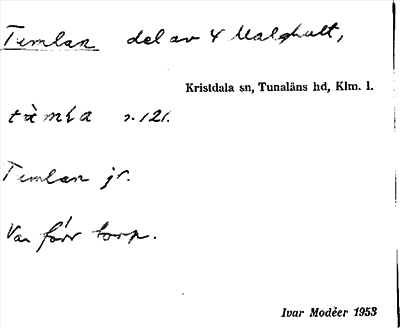 Timlan del av 4 Malghult,
Kristdala sn, Tunaläns hd, Klm. l.
tı̀mla n. 121.
Timlan jr.
Var förr torp.
Ivar Modéer 1953